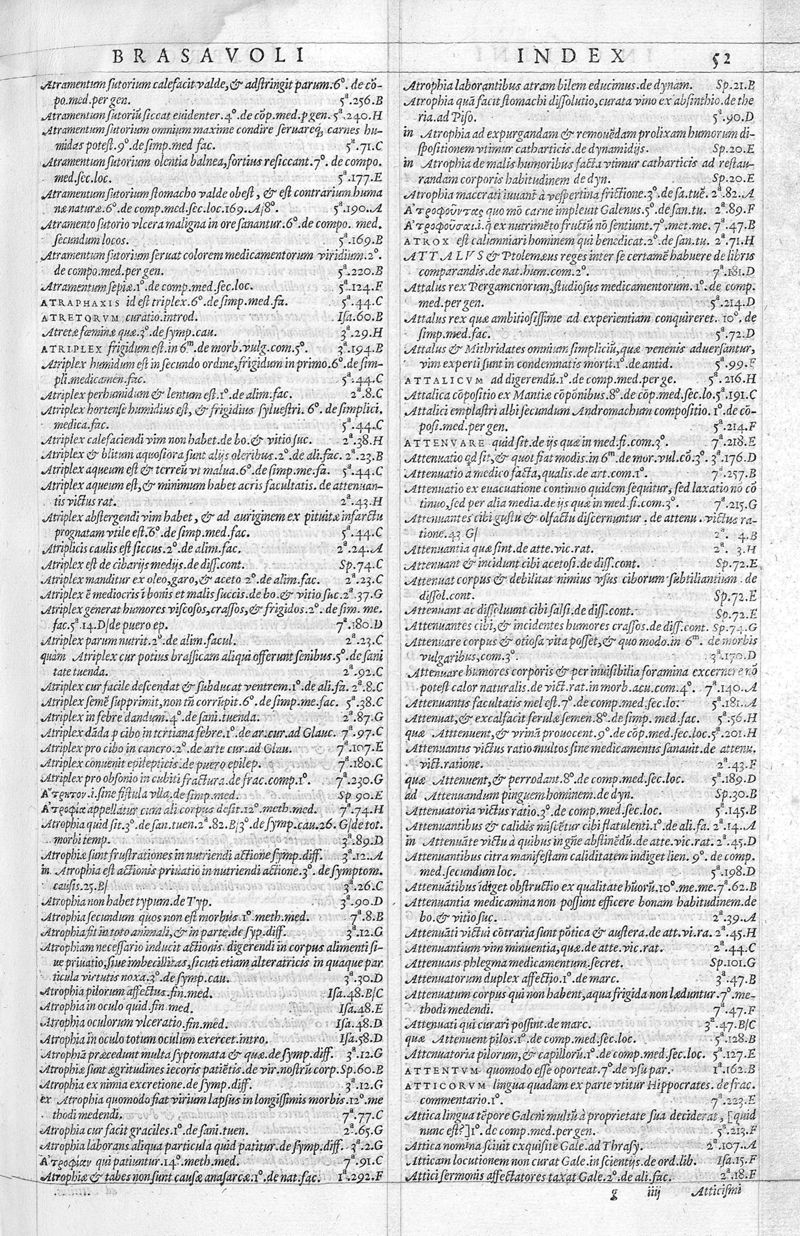 BRASAVOLI
Atramentum sutorium calefacit valde, & adstringit parum. 6°. de cō-
po. med. per gen. 5ᵃ.256.B
Atramentum sutoriū siccat euidenter. 4°. de cōp. med. p gen. 5ᵃ.240.H
Atramentum sutorium omnium maxime condire seruareq; carnes hu-
midas potest. 9°. de simp. med. fac. 5ᵃ.71.C
Atramentum sutorium olentia balnea, fortius resiccant. 7°. de compo.
med. sec. loc. 5ᵃ.177.E
Atramentum sutorium stomacho valde obest, & est contrarium huma
næ naturæ. 6°. de comp. med. sec. loc. 169. A/8°. 5ᵃ.190.A
Atramento sutorio vlcera maligna in ore sanantur. 6°. de compo. med.
secundum locos. 5ᵃ.169.B
Atramentum sutorium seruat colorem medicamentorum viridium. 2°.
de compo. med. per gen. 5ᵃ.220.B
Atramentum sepiæ. 1°. de comp. med. sec. loc. 5ᵃ.124.F
ATRAPHAXIS id est triplex. 6°. de simp. med. fa. 5ᵃ.44.C
ATRETORVM curatio. introd. Isa.60.B
Atretæ fœminæ quæ. 3°. de symp. cau. 3ᵃ.29.H
ATRIPLEX frigidum est. in 6ᵐ. de morb. vulg. com. 5°. 3ᵃ.194.B
Atriplex humidum est in secundo ordine, frigidum in primo. 6°. de sim-
pli. medicamen. fac. 5ᵃ.44.C
Atriplex perhumidum & lentum est. 1°. de alim. fac. 2ᵃ.8.C
Atriplex hortense humidius est, & frigidius syluestri. 6°. de simplici.
medica. fac. 5ᵃ.44.C
Atriplex calefaciendi vim non habet. de bo. & vitio suc. 2ᵃ.38.H
Atriplex & blitum aquosiora sunt alijs oleribus. 2°. de ali. fac. 2ᵃ.23.B
Atriplex aqueum est & terreū vt malua. 6°. de simp. me. fa. 5ᵃ.44.C
Atriplex aqueum est, & minimum habet acris facultatis. de attenuan-
tis victus rat. 2ᵃ.43.H
Atriplex abstergendi vim habet, & ad auriginem ex pituitæ infarctu
prognatam vtile est. 6°. de simp. med. fac. 5ᵃ.44.C
Atriplicis caulis est siccus. 2°. de alim. fac. 2ᵃ.24.A
Atriplex est de cibarijs medijs. de diss. cont. Sp.74.C
Atriplex manditur ex oleo, garo, & aceto 2°. de alim. fac. 2ᵃ.23.C
Atriplex ē mediocris i bonis et malis succis. de bo. & vitio suc. 2ᵃ.37.G
Atriplex generat humores viscosos, crassos, & frigidos. 2°. de sim. me.
fac. 5ᵃ.14.D/de puero ep. 7ᵃ.180.D
Atriplex parum nutrit. 2°. de alim. facul. 2ᵃ.23.C
quam Atriplex cur potius brassicam aliqui offerunt senibus. 5°. de sani
tate tuenda. 2ᵃ.92.C
Atriplex cur facile descendat & subducat ventrem. 1°. de ali. fa. 2ᵃ.8.C
Atriplex semē supprimit, non tñ corrūpit. 6°. de simp. me. fac. 5ᵃ.38.C
Atriplex in febre dandum. 4°. de sani. tuenda. 2ᵃ.87.G
Atriplex dāda p cibo in tertiana febre. 1°. de ar. cur. ad Glauc. 7ᵃ.97.C
Atriplex pro cibo in cancro. 2°. de arte cur. ad Glau. 7ᵃ.107.E
Atriplex conuenit epilepticis. de puero epilep. 7ᵃ.180.C
Atriplex pro obsonio in cubiti fractura. de frac. comp. 1°. 7ᵃ.230.G
Ἄτρητον. i. sine fistula vlla. de simp. med. Sp.90.E
Ἀτροφία appellatur cum ali corpus desit. 12°. meth. med. 7ᵃ.74.H
Atrophia quid sit. 3°. de san. tuen. 2ᵃ.82.B/3°. de symp. cau. 26. G/de tot.
morbi temp. 3ᵃ.89.D
Atrophiæ sunt frustrationes in nutriendi actione symp. diff. 3ᵃ.12.A
in Atrophia est actionis priuatio in nutriendi actione. 3°. de symptom.
causis. 25. B/ 3ᵃ.26.C
Atrophia non habet typum. de Typ. 3ᵃ.90.D
Atrophia secundum quos non est morbus 1°. meth. med. 7ᵃ.8.B
Atrophia fit in toto animali, & in parte. de syp. diff. 3ᵃ.12.G
Atrophiam necessario inducit actionis digerendi in corpus alimenti si-
ue priuatio, siue imbecillitas, sicuti etiam alteratricis in quaque par
ticula virtutis noxa. 3°. de symp. cau. 3ᵃ.30.D
Atrophia pilorum affectus. fin. med. Isa.48.B/C
Atrophia in oculo quid. fin. med. Isa.48.E
Atrophia oculorum vlceratio. fin. med. Isa.48.D
Atrophia in oculo totum oculum exercet. intro. Isa.58.D
Atrophiā præcedunt multa syptomata & quæ. de symp. diff. 3ᵃ.12.G
Atrophiæ sunt ægritudines iecoris patiētis. de vir. nostrū corp. Sp.60.B
Atrophia ex nimia excretione. de symp. diff. 3ᵃ.12.G
ex Atrophia quomodo fiat virium lapsus in longissimis morbis. 12°. me
thodi medendi. 7ᵃ.77.C
Atrophia cur facit graciles. 1°. de sani. tuen. 2ᵃ.65.G
Atrophia laborans aliqua particula quid patitur. de symp. diff. 3ᵃ.2.G
Ἀτροφίαν qui patiuntur. 14°. meth. med. 7ᵃ.91.C
Atrophia & tabes non sunt causæ anasarcæ. 1°. de nat. fac. 1ᵃ.292.F
INDEX 52
Atrophia laborantibus atram bilem educimus. de dynam. Sp.21.B
Atrophia quā facit stomachi dissolutio, curata vino ex absinthio. de the
ria. ad Piso. 5ᵃ.90.D
in Atrophia ad expurgandam & remouēdam prolixam humorum di-
spositionem vtimur catharticis. de dynamidijs. Sp.20.E
in Atrophia de malis humoribus facta vtimur catharticis ad restau-
randam corporis habitudinem de dyn. Sp.20.E
Atrophia macerati iuuant à vespertina frictione. 3°. de sa. tuē. 2ᵃ.82.A
Ἀτροφοῦντας quo mō carne impleuit Galenus. 5°. de san. tu. 2ᵃ.89.F
Ἀτροφοῦσαι. i. q̄ ex nutrimēto fructū nō sentiunt. 7°. met. me. 7ᵃ.47.B
ATROX est calumniari hominem qui benedicat. 2°. de san. tu. 2ᵃ.71.H
ATTALVS & Ptolemæus reges inter se certamē habuere de libris
comparandis. de nat. hum. com. 2°. 7ᵃ.181.D
Attalus rex Pergamenorum, studiosus medicamentorum. 1°. de comp.
med. per gen. 5ᵃ.214.D
Attalus rex quæ ambitiosissime ad experientiam conquireret. 10°. de
simp. med. fac. 5ᵃ.72.D
Attalus & Mithridates omnium simpliciū, quæ venenis aduersantur,
vim experti sunt in condemnatis morti. 1°. de antid. 5ᵃ.99.F
ATTALICVM ad digerendū. 1°. de comp. med. per ge. 5ᵃ.216.H
Attalica cōpositio ex Mantiæ cōponibus. 8°. de cōp. med. sec. lo. 5ᵃ.191.C
Attalici emplastri albi secundum Andromachum compositio. 1°. de cō-
posi. med. per gen. 5ᵃ.214.F
ATTENVARE quid sit. de ijs quæ in med. fi. com. 3°. 7ᵃ.218.E
Attenuatio qd sit, & quot fiat modis. in 6ᵐ. de mor. vul. cō. 3°. 3ᵃ.176.D
Attenuatio a medico facta, qualis. de art. com. 1°. 7ᵃ.257.B
Attenuatio ex euacuatione continuo quidem sequitur, sed laxatio nō cō
tinuo, sed per alia media. de ijs quæ in med. fi. com. 3°. 7ᵃ.215.G
Attenuantes cibi gustu & olfactu discernuntur. de attenu. victus ra-
tione. 43 G/ 2ᵃ. 4.B
Attenuantia quæ sint. de atte. vic. rat. 2ᵃ. 3.H
Attenuant & incidunt cibi acetosi. de diss. cont. Sp.72.E
Attenuat corpus & debilitat nimius vsus ciborum subtiliantium. de
dissol. cont. Sp.72.E
Attenuant ac dissoluunt cibi salsi, de diss. cont. Sp.72.E
Attenuantes cibi, & incidentes humores crassos. de diss. cont. Sp.74.G
Attenuare corpus & otiosa vita posset, & quo modo. in 6ᵐ. de morbis
vulgaribus, com. 3°. 3ᵃ.170.D
Attenuare humores corporis & per inuisibilia foramina excernere nō
potest calor naturalis. de vict. rat. in morb. acu. com. 4°. 7ᵃ.140.A
Attenuantis facultatis mel est. 7°. de comp. med. sec. lo: 5ᵃ.181.A
Attenuat, & excalfacit ferulæ semen. 8°. de simp. med. fac. 5ᵃ.56.H
quæ Atttenuent, & vrinā prouocent. 9°. de cōp. med. sec. loc. 5ᵃ.201.H
Attenuantis victus ratio multos sine medicamentis sanauit. de attenu.
vict. ratione. 2ᵃ.43.F
quæ Attenuent, & perrodant. 8°. de comp. med. sec. loc. 5ᵃ.189.D
ad Attenuandum pinguem hominem. de dyn. Sp.30.B
Attenuatoria victus ratio. 3°. de comp. med. sec. loc. 5ᵃ.145.B
Attenuantibus & calidis miscētur cibi flatulenti. 1°. de ali. fa. 2ᵃ.14.A
in Attenuāte victu à quibus in gñe abstinēdū. de atte. vic. rat. 2ᵃ.45.D
Attenuantibus citra manifestam caliditatem indiget lien. 9°. de comp.
med. secundum loc. 5ᵃ.198.D
Attenuātibus īdiget obstructio ex qualitate hūorū. 10°. me. me. 7ᵃ.62.B
Attenuantia medicamina non possunt efficere bonam habitudinem. de
bo. & vitio suc. 2ᵃ.39.A
Attenuāti victui cōtraria sunt pōtica & austera. de att. vi. ra. 2ᵃ.45.H
Attenuantium vim minuentia, quæ. de atte. vic. rat. 2ᵃ.44.C
Attenuans phlegma medicamentum. secret. Sp.101.G
Attenuatorum duplex affectio. 1°. de marc. 3ᵃ.47.B
Attenuatum corpus qui non habent, aqua frigida non læduntur. 7°. me-
thodi medendi. 7ᵃ.47.F
Attenuati qui curari possint. de marc. 3ᵃ.47.B/C
quæ Attenuent pilos. 1°. de comp. med. sec. loc. 5ᵃ.128.B
Attenuatoria pilorum, & capillorū. 1°. de comp. med. sec. loc. 5ᵃ.127.E
ATTENTVM quomodo esse oporteat. 7°. de vsu par. 1ᵃ.162.B
ATTICORVM lingua quadam ex parte vtitur Hippocrates. de frac.
commentario. 1°. 7ᵃ.223.E
Attica lingua tēpore Galeni multū à proprietate sua deciderat, [quid
nunc est?] 1°. de comp. med. per gen. 5ᵃ.213.F
Attica nomina sciuit exquisite Gale. ad Thrasy. 2ᵃ.107.A
Atticam locutionem non curat Gale. in scientijs. de ord. lib. Isa.15.F
Attici sermonis affectatores taxat Gale. 2°. de ali. fac. 2ᵃ.18.F
g iiij Atticismi